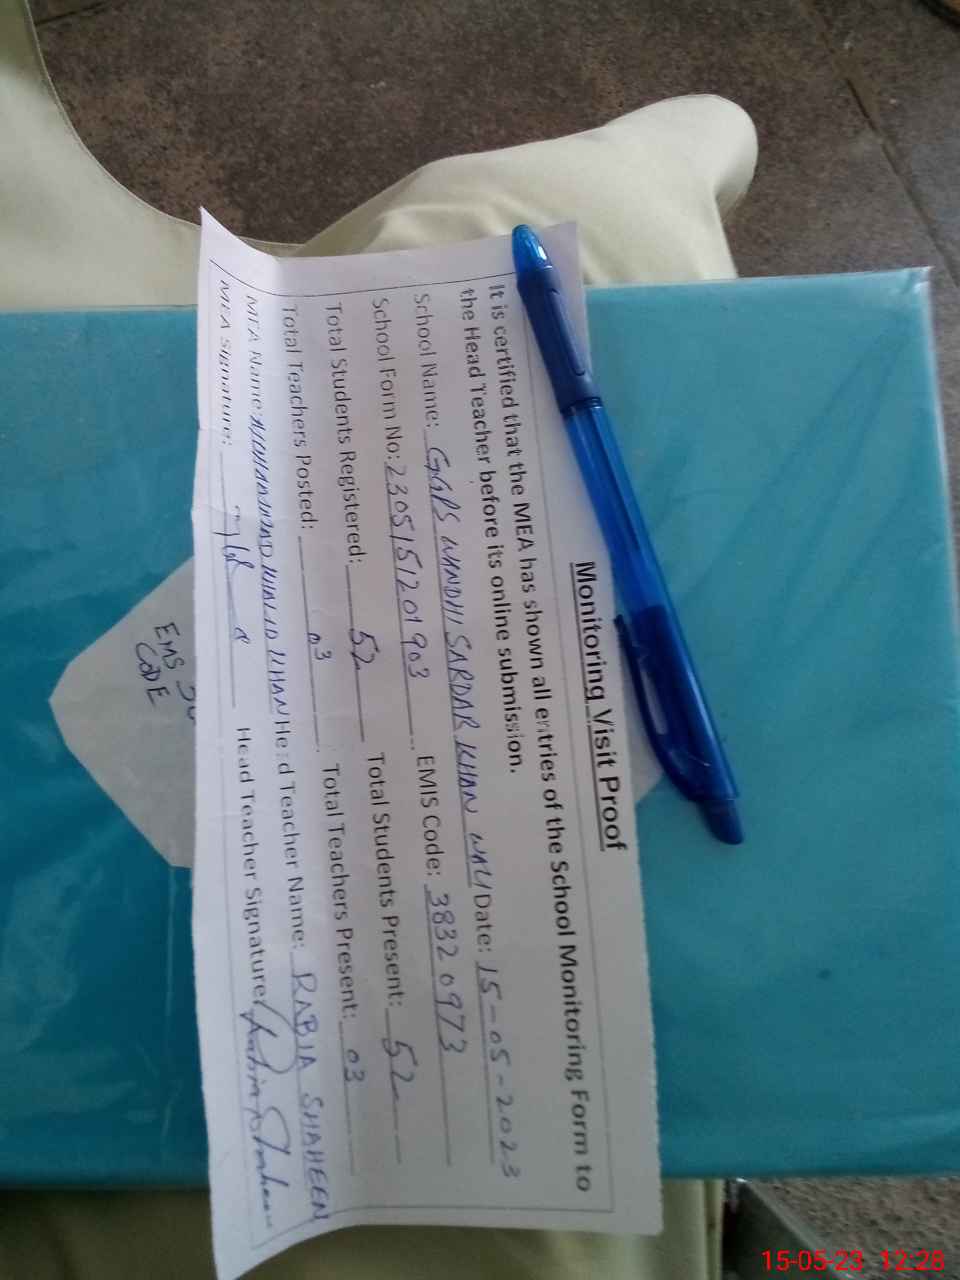 Monitoring Visit Proof
It is certified that the MEA has shown all entries of the School Monitoring Form to
the Head Teacher before its online submission.
School Name: GGPS WANDHI SARDAR KHAN WALI Date: 15-05-2023
School Form No: 2305151201903 EMIS Code: 38320973
Total Students Registered: 52 Total Students Present: 52
Total Teachers Posted: 03 Total Teachers Present: 03
MEA Name: MUHAMMAD KHALID KHAN Head Teacher Name: RABIA SHAHEEN
MEA Signature: Head Teacher Signature: Rabia Shaheen
EMS
CODE
15-05-23 12:28